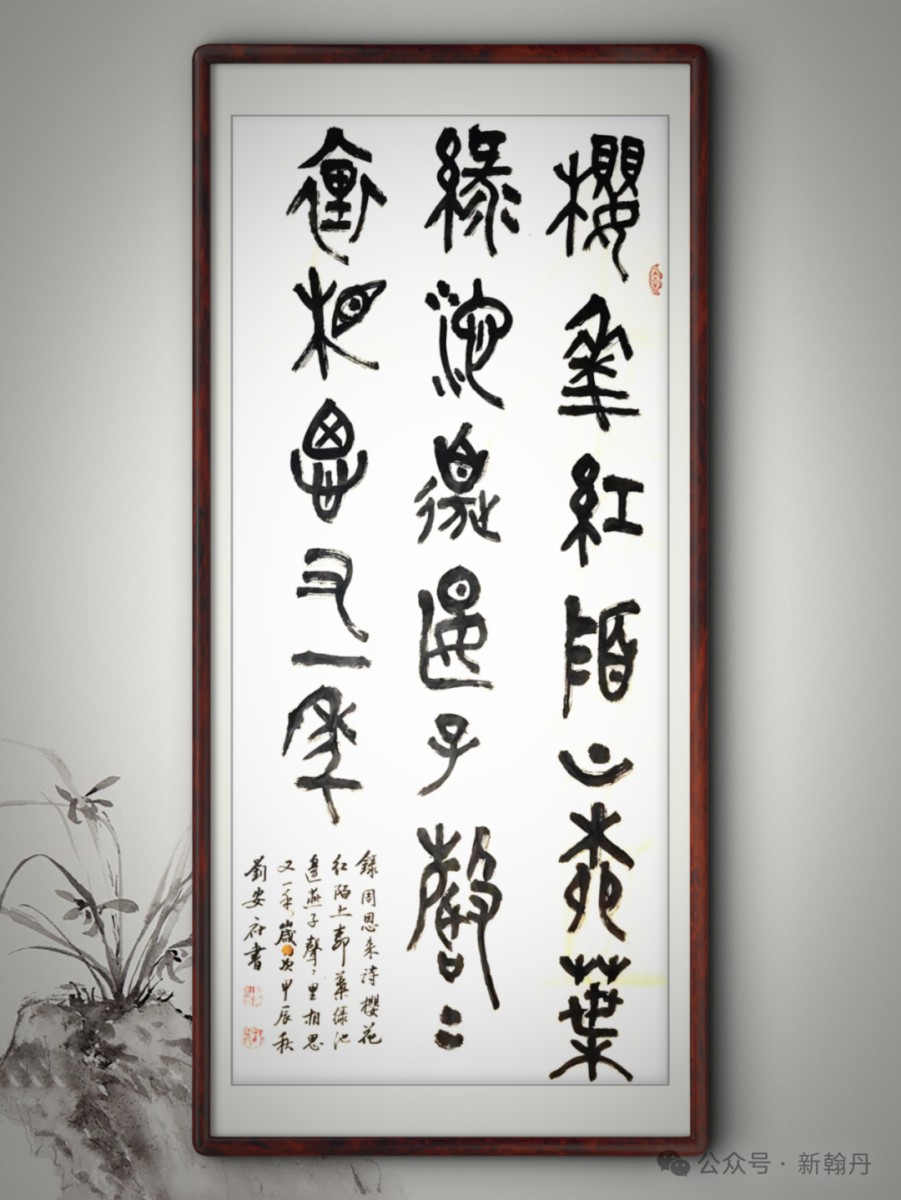 櫻花紅陌上柳葉
綠池邊匽子聲二
裏相思又一年
錄周恩来诗櫻花
红陌上柳葉绿池
邊燕子聲〻里相思
又一年歲次甲辰秋
劉安書
公众号 · 新翰丹